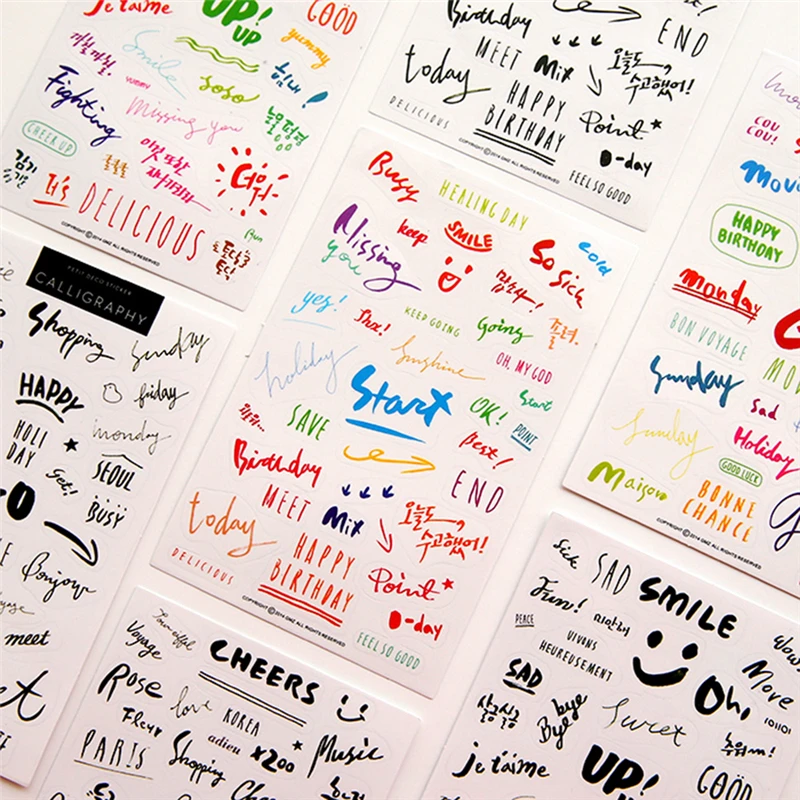 Je t'aime
UP!
UP
GOOD
Smile
yummy
힘내!
soso
YUMMY
Fighting
Missing you
CHEER UP
It's DELICIOUS
COPYRIGHT © 2014 GMZ ALL RIGHTS RESERVED
Birthday
MEET
Mix
END
today
HAPPY
BIRTHDAY
오늘도,
수고했어!
Point
D-day
DELICIOUS
FEEL SO GOOD
COPYRIGHT © 2014 GMZ ALL RIGHTS RESERVED
PETIT DECO STICKER
CALLIGRAPHY
Shopping
Sunday
HAPPY
friday
HOLI
DAY
monday
SEOUL
get!
BUSY
Bonjour
meet
Busy
HEALING DAY
keep
SMILE
So Sick
cold
Missing
you
yes!
Thx!
KEEP GOING
Going
졸려.
holiday
Sunshine
OH, MY GOD
Start
OK!
Start
SAVE
Best!
POINT
Birthday
MEET
Mix
END
today
HAPPY
BIRTHDAY
오늘도,
수고했어!
Point
D-day
DELICIOUS
FEEL SO GOOD
COPYRIGHT © 2014 GMZ ALL RIGHTS RESERVED
COU
COU!
HAPPY
BIRTHDAY
monday
BON VOYAGE
Sunday
Sad
Sunday
Holiday
GOOD LUCK
Maison
BONNE
CHANCE
COPYRIGHT © 2014 GMZ ALL RIGHTS RESERVED
Voyage
CHEERS
Rose
love
KOREA
Fleur
adieu
x200
Music
PARIS
Shopping
Cheers
Sick
SAD
SMILE
Fun!
미안해
PEACE
VIVONS
HEUREUSEMENT
Oh,
Move
SAD
bye
Bye
Sweet
je t'aime
UP!
UP
GOOD